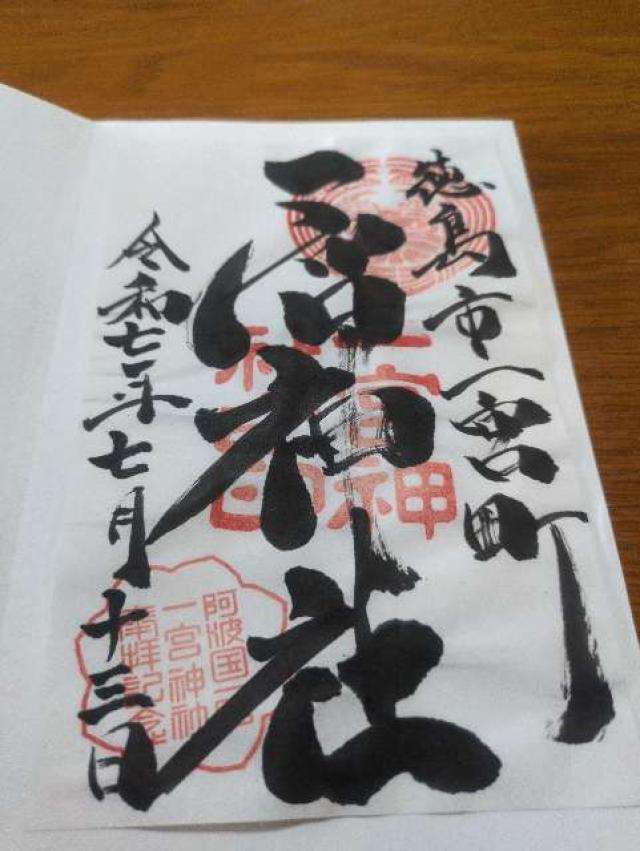 徳島市一宮町
一宮神社
令和七年七月十三日
一宮神
社印
阿波国一宮
一宮神社
参拝記念